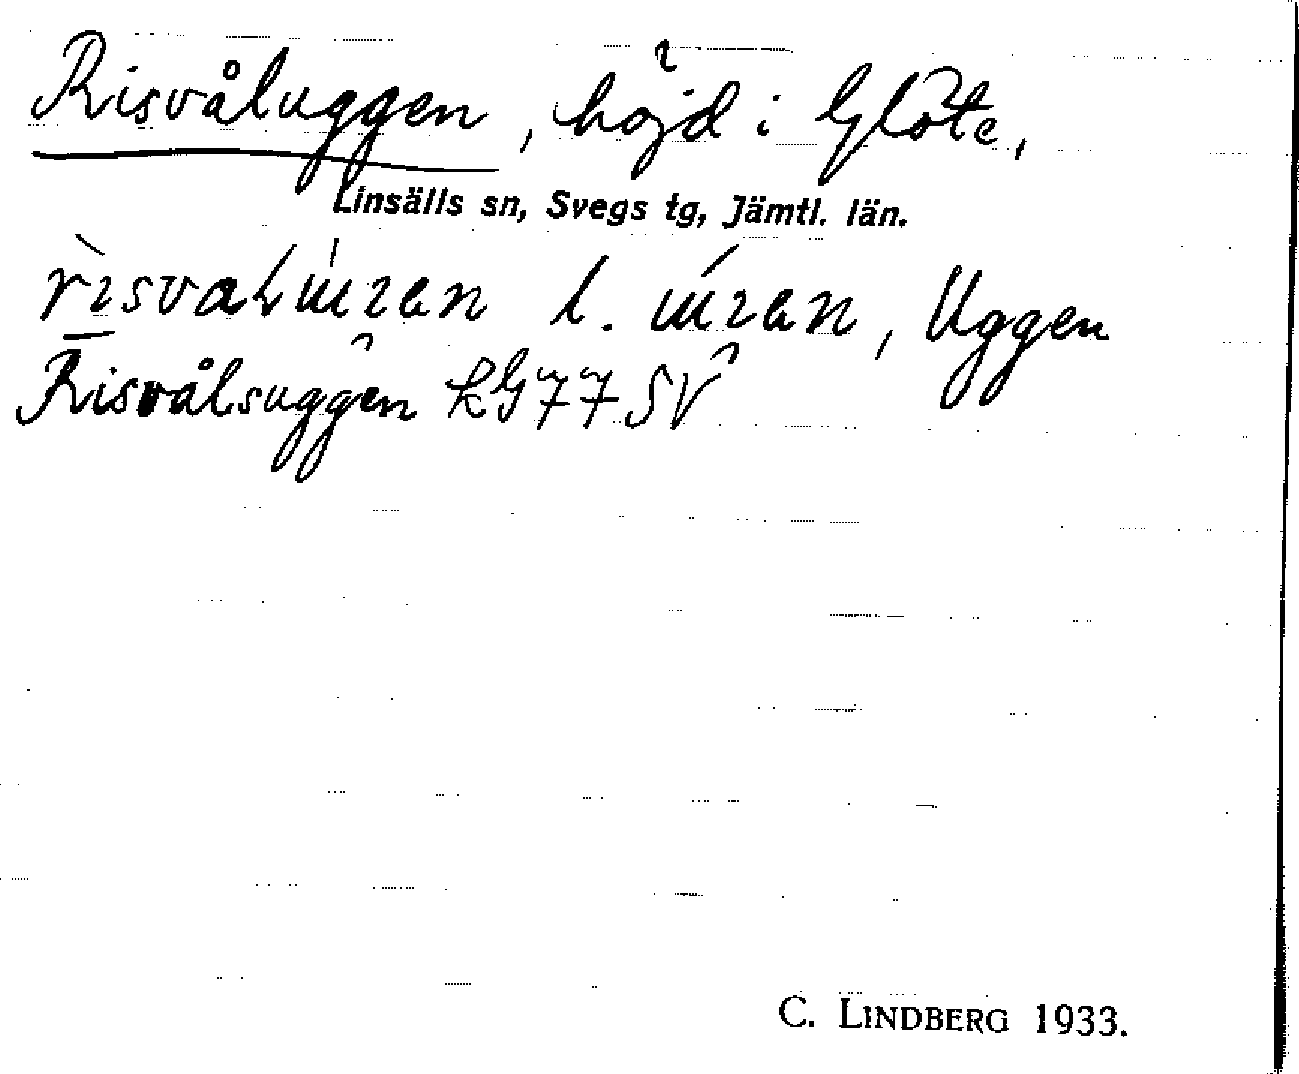 Risvåluggen, höjd i Glöte,
Linsälls sn, Svegs tg, Jämtl. län.
l. Uggen
Risvålsuggen KG77SV
C. LINDBERG 1933.